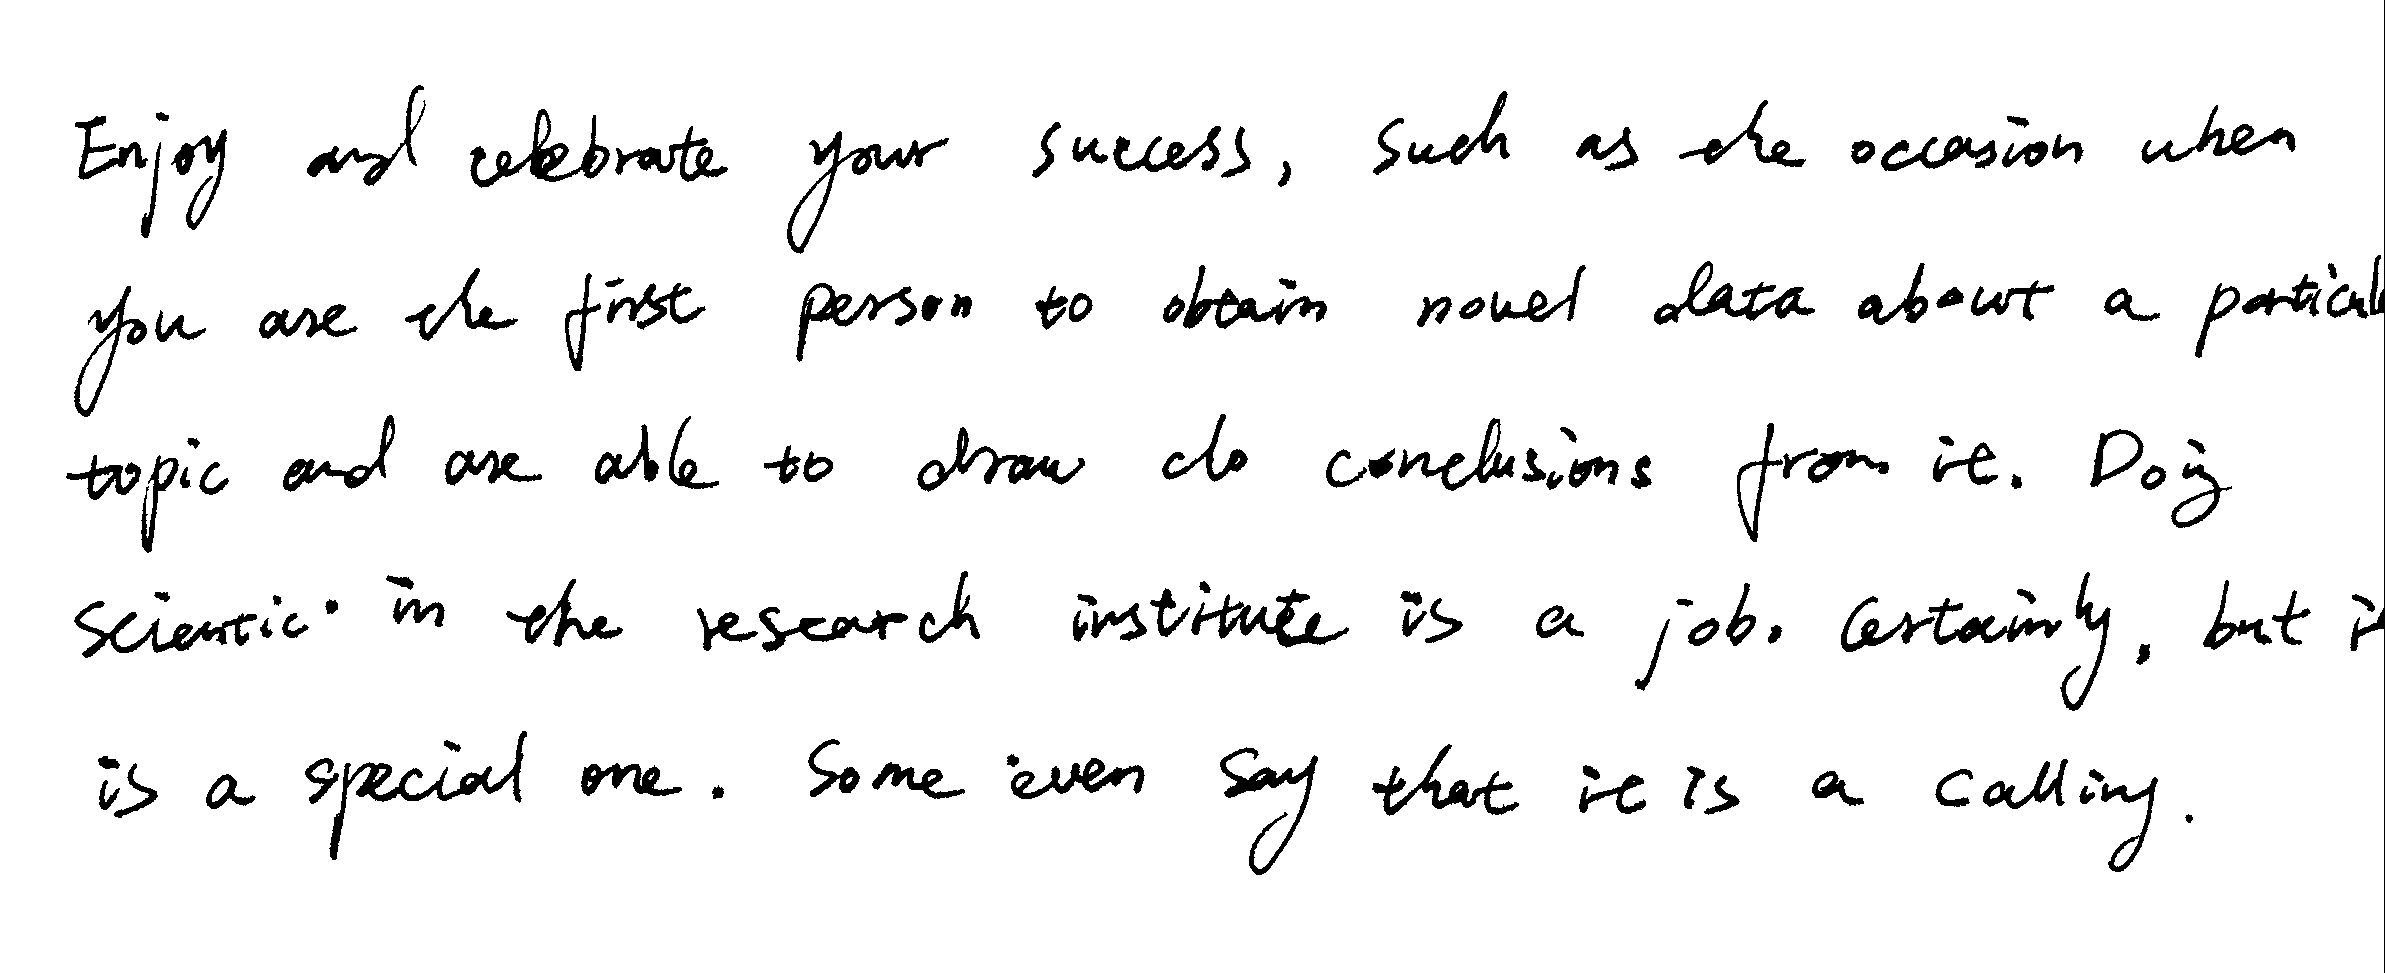 Enjoy and celebrate your success, such as the occasion when
you are the first person to obtain novel data about a particul
topic and are able to draw do conclusions from it. Doing
scientic. in the research institute is a job. Certainly, but it
is a special one. Some even say that it is a calling.